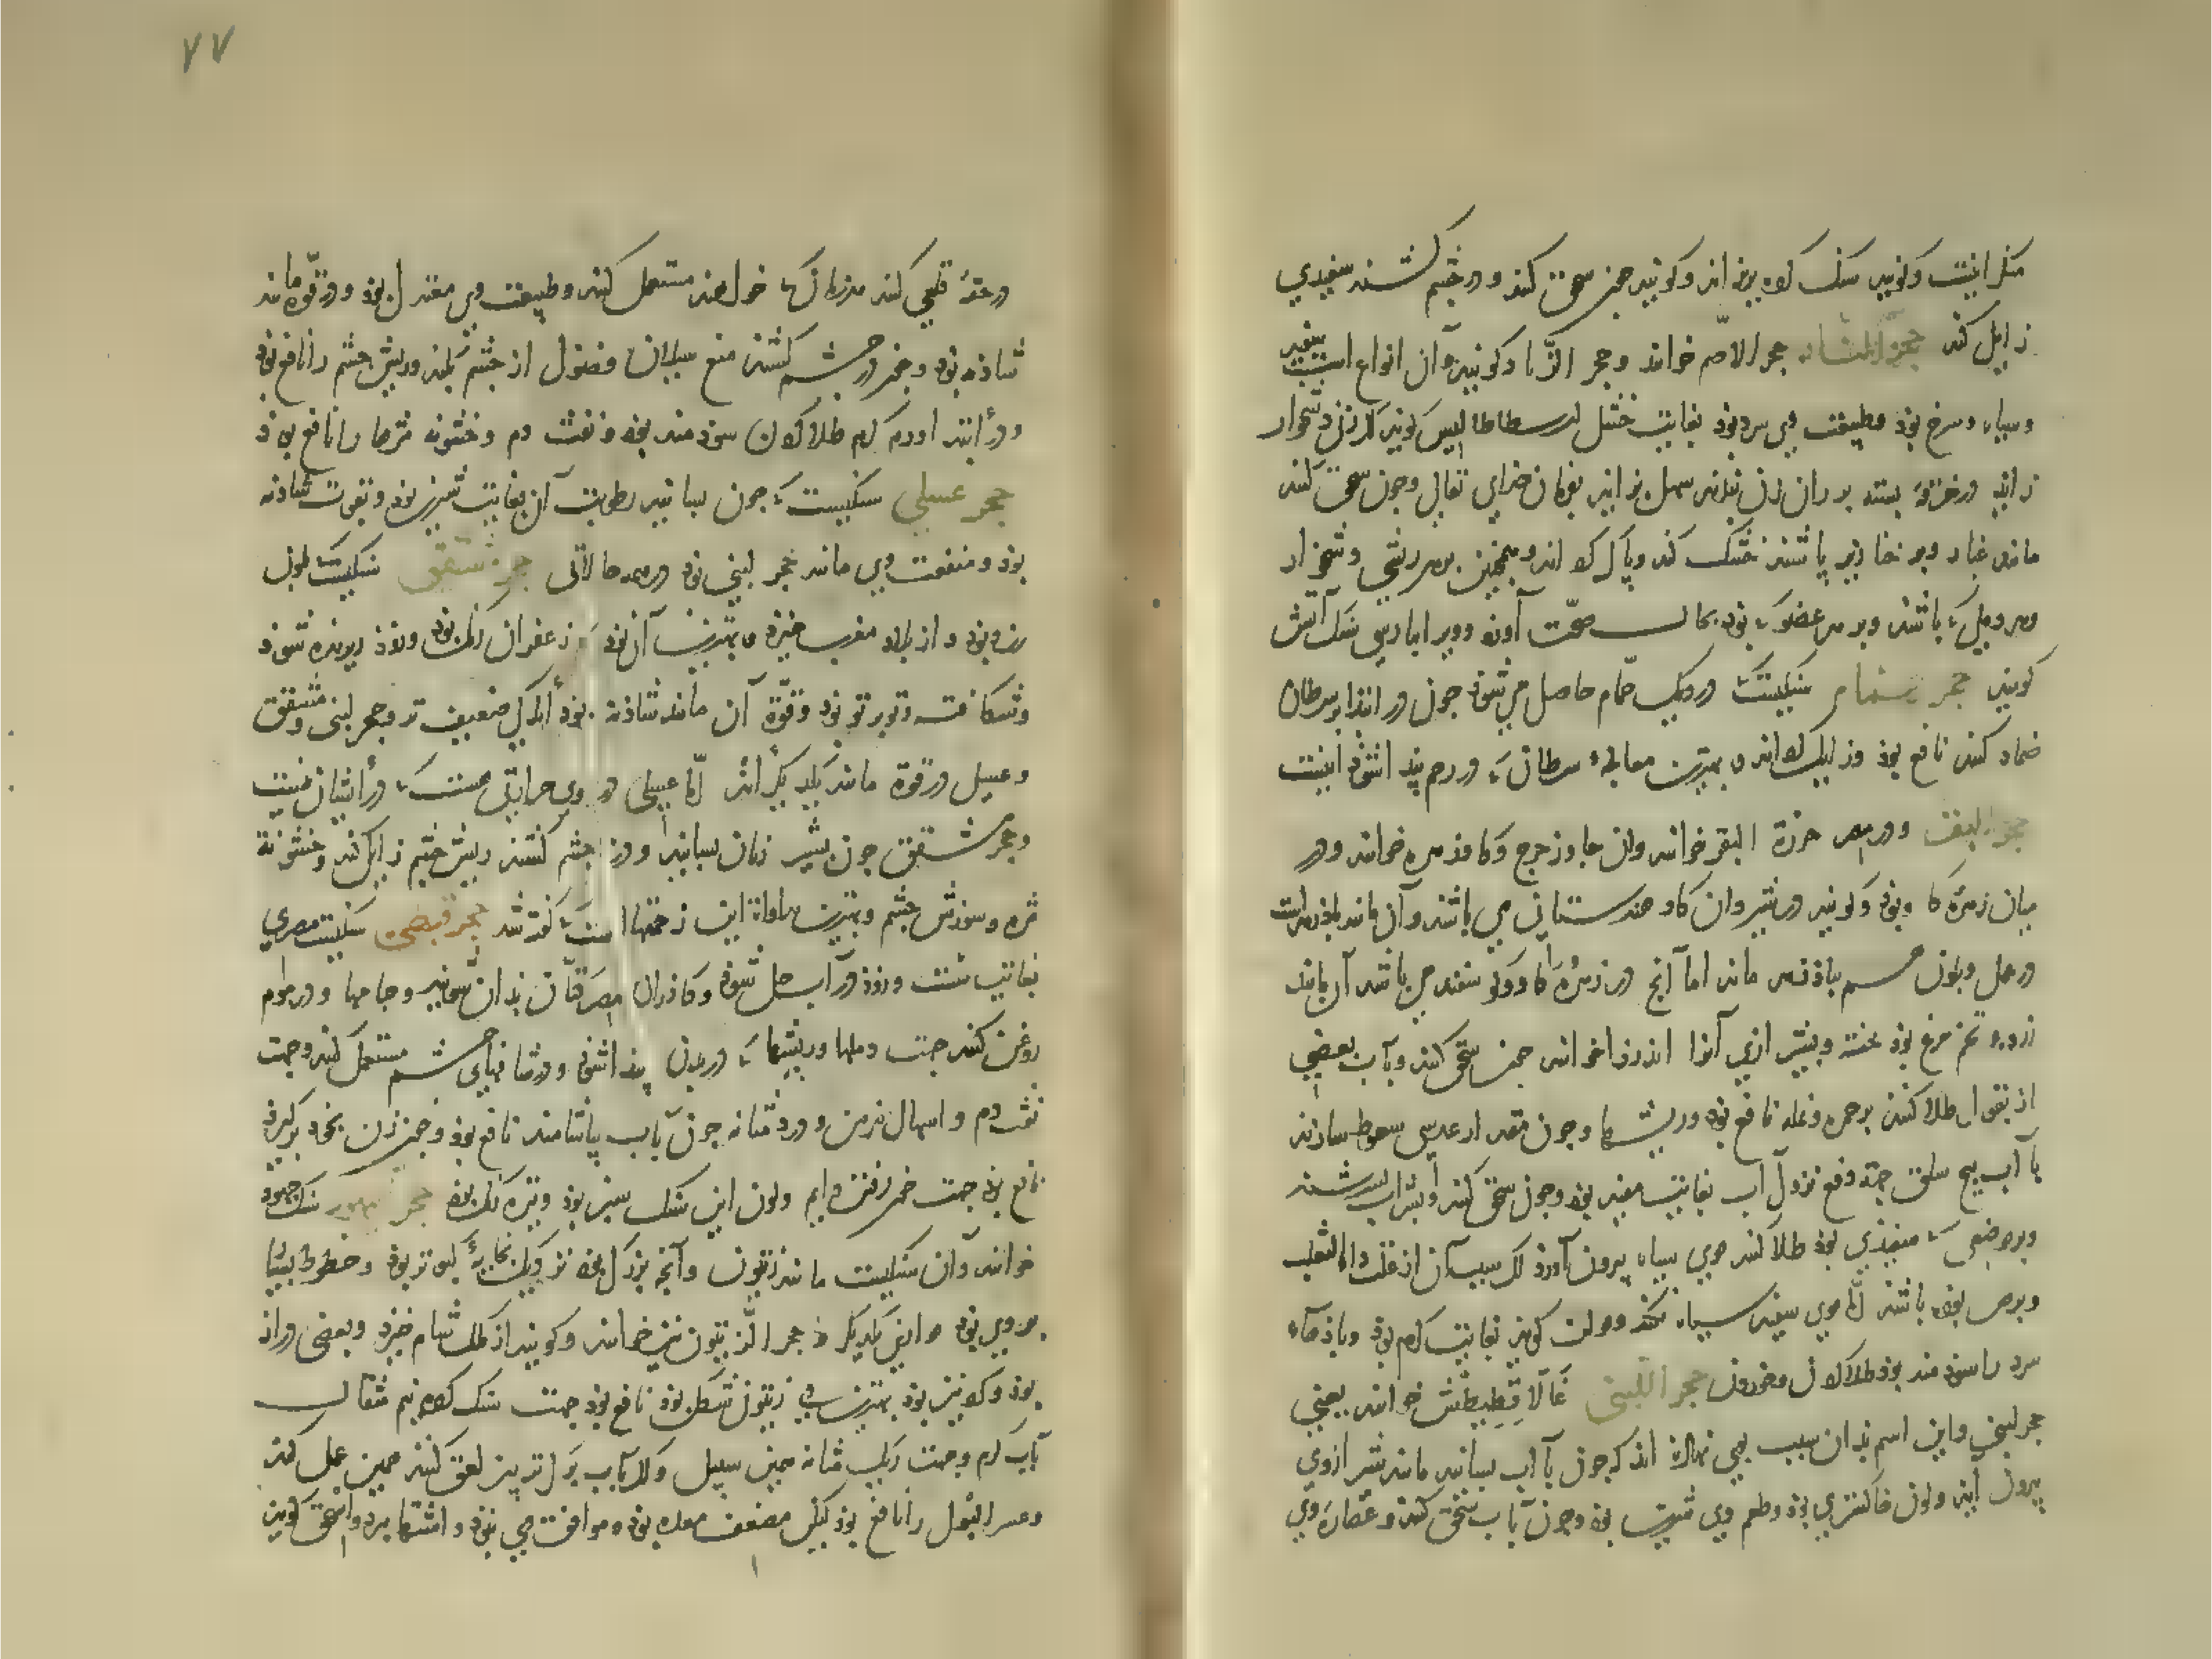 منکر اینست و کویند سنک کوه بریزاند و کویند جون سحق کنند و در چشم کشند سبیدی
زایل کند حجر المشاء حجر الاصم خوانند و حجر الزنا و کویند و آن انواع است سفید
و سیاه و سرخ بود و طبیعت وی سرد بود بغایت خشک ارسطاطالیس کوید اکر زن دشخوار
زاید در خرقهٔ بسته بر ران زن بندند سهل بزاید بفرمان خدای تعالی و جون سحق کنند
مانند غبار و بر خنازیر پاشند خشک کند و پاک کرداند و همجنین بر هر ریشی دشخوار
و هر دمل که باشد و بر هر عضو که بود بحال صحت آورد و ویرا بپارسی سنک آتش
کویند حجر حمام سنکیست که در دیک حمام حاصل می شود جون در ابتدا بر سرطان
ضماد کنند نافع بود و زایل کرداند و بهترین معالجهٔ سرطان که در رحم پیدا شود اینست
حجر البقر و در مصر خرزة البقر خوانند و آن جاوزهرج و کاوزهره خوانند و در
میان زهرهٔ کاو بود و کویند در شیردان کاو هندوستانی می باشد و آن مانند بادزهر است
در عمل و بلون هم بپادزهر ماند اما آنج در زهرهٔ کاو و کوسفند می باشد آن مانند
زردهٔ تخم مرغ بود پخته و بیشتر ازین آنرا اندرزا خوانند جون سحق کنند و بآب بعضی
از بقول طلا کنند بر حمره و نمله نافع بود و ریشها و جون مقدار عدسی سعوط سازند
با آب بیخ سلق جهة دفع نزول آب بغایت مفید بود و جون سحق کنند و بشراب بسرشند
و بر موضعی که سفیدی بود طلا کنند موی سیاه بیرون آورد اکر سبب آن از علت داء الثعلب
و برص بوده باشد اما موی سفید سیاه نکند و مولف کوید بغایت کرم بود و باذهاء
سرد را سوذمند بود طلا کردن و خوردن حجر اللبنی غالاقطیطش خوانند یعنی
حجر لبنی و این اسم بدان سبب بوی نهاده اند که جون با آب بسایند مانند شیر ازوی
بیرون آید و لون خاکستری بود و طعم وی شیرین بود و جون بآب سحق کنند و عصاره وی
در حقهٔ قلعی کنند هر زمان که خواهند مستعمل کنند و طبیعت وی معتدل بود و در قوه مانند
شاذنه بود و جون در چشم کشند منع سیلان فضول از چشم بکند و ریش چشم را نافع بود
و در ابتدا اورام کرم طلا کردن سوذمند بود و نفث دم و خشونه مژها را نافع بود
حجر عسلی سنکیست که جون بسایند رطوبت آن بغایت شیرین بود و بقوت شاذنه
بود و منفعت وی مانند حجر لبنی بود در همه حالاتی حجر مشقق سنکیست بلون
زرد بود و از بلاد مغرب خیزد و بهترین آن بود که زعفران رنک بود و زود ریزیده شود
و شکافته و توبرتو بود و قوة آن مانند شاذنه بود اندکی ضعیف تر و حجر لبنی و مشقق
و عسلی در قوة مانند یکدیکر اند اما عسلی در وی حرارتی هست که در ایشان نیست
و حجر مشقق جون بشیر زنان بسایند و در چشم کشند ریش چشم زایل کند و خشونة
مژه و سوزش چشم و بهترین مداواة این زحمتها است که کفته شد حجر قبطی سنکیست مصری
بغایت سست و زود در آب حل شود و کاذران مصر کتان بذان شویند و جامها و در موم
روغن کنند جهت دملها و ریشها که در بدن پیدا شود و در شیافهای چشم مستعمل کنند و جهت
نفث دم و اسهال مزمن و درد مثانه جون بآب بیاشامند نافع بود و جون زن بخود برکیرد
نافع بود جهت خون رفتن دایم و لون این سنک سبز بود و تیره رنک بود حجر الیهود سنک جهود
خوانند و آن سنکیست مانند زیتون و آنجه بزرک بود نزدیک بجابهٔ کوجکتر بود و خطوط بسیار
بر وی بود موازی یکدیکر و حجر الزیتون نیز خوانند و کویند از ملک شام خیزد و بعضی دراز
بود و کرد نیز بود بهترین وی زیتون شکل بود نافع بود جهت سنک کرده نیم مثقال
بآب کرم و جهت ریک مثانه همین سبیل و اکر بآب بر آن تیز لعق کنند همین عمل کند
و عسر البول را نافع بود لیکن مضعف معده بود و موافق وی نبود و اشتها ببرد و اسحق کوید